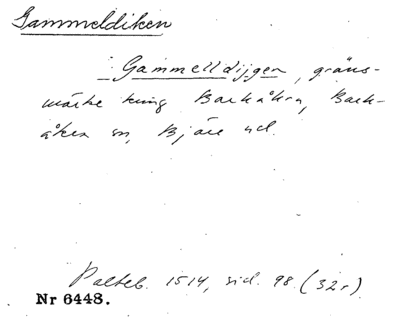 Gammeldiken
: Gammelldijgen, gräns-
märke kring Barkåkra, Bark-
åkra sn, Bjäre hd.
Palteb. 1514, sid. 98 (32r).
Nr 6448.